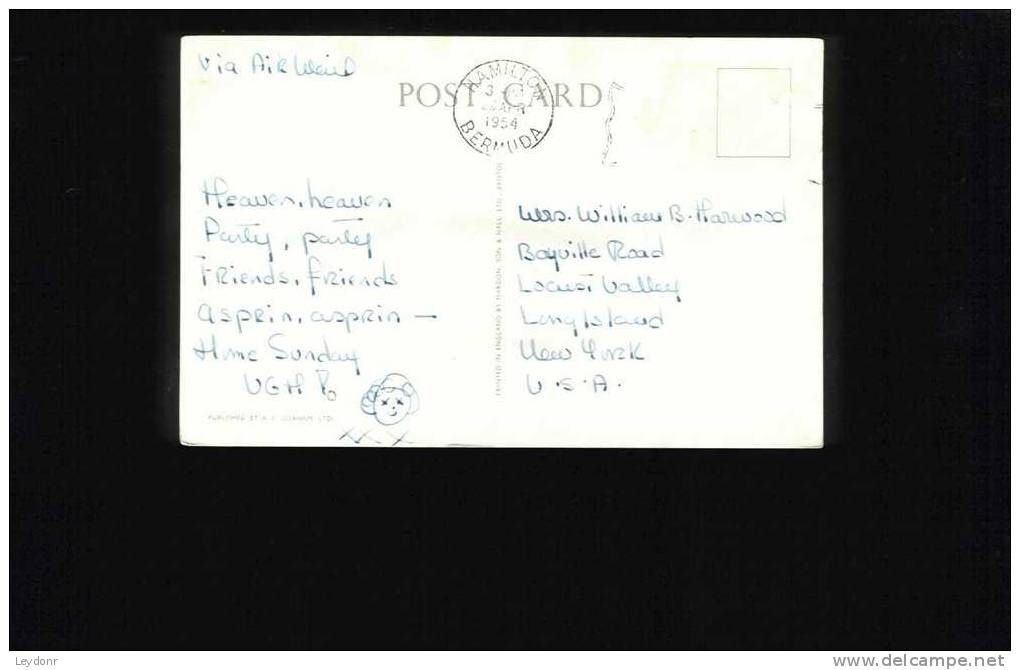 Via Air Mail
POST CARD
HAMILTON
3
APR
1954
BERMUDA
Heaven, heaven
Party, party
Friends, friends
asprin, asprin —
Home Sunday
UGH
XX X
PUBLISHED BY A. J. GORHAM LTD.
PRINTED IN ENGLAND BY MARDON, SON & HALL, LTD., BRISTOL
Mrs. William B. Harwood
Bayville Road
Locust Valley
Long Island
New York
U.S.A.
Leydonr
delcampe.net